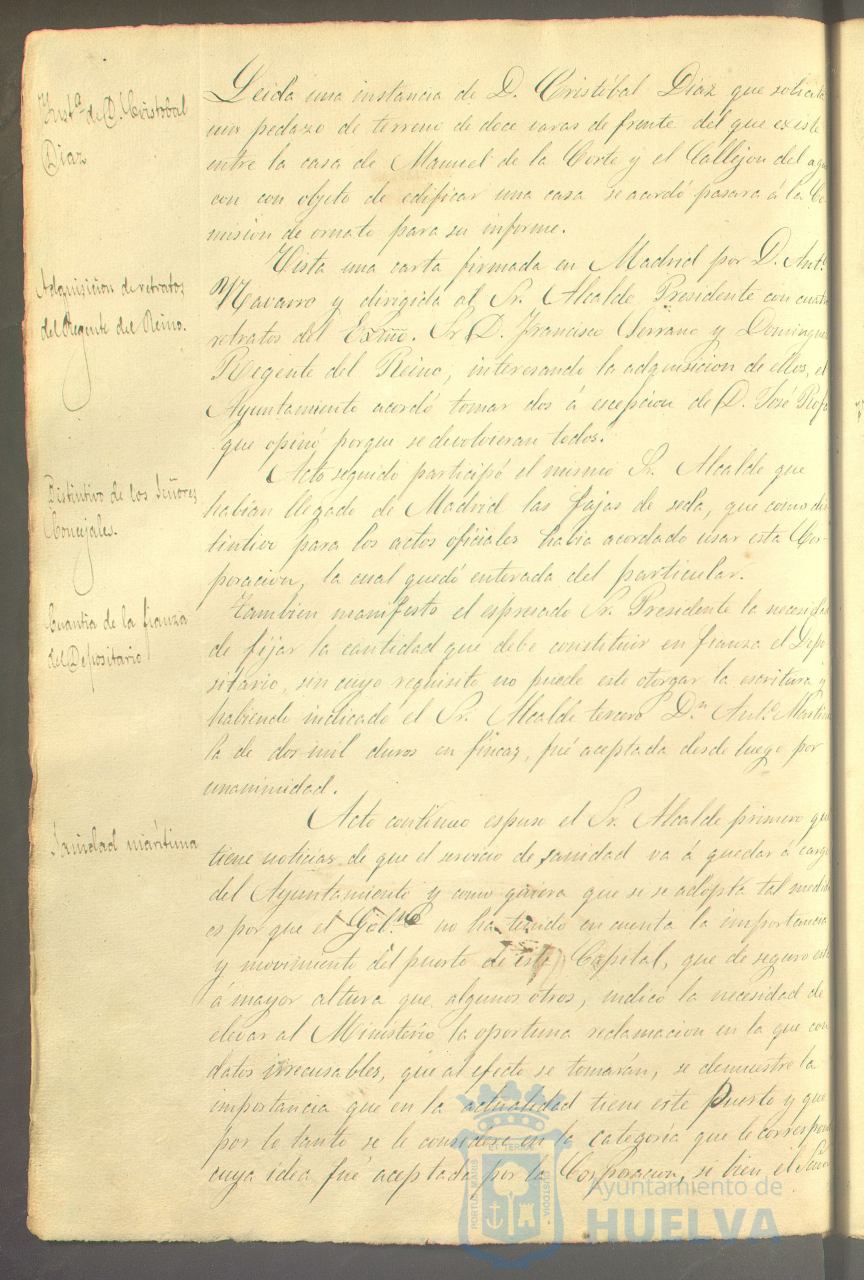 Inst.ª de D. Cristobal
Diaz
Leida una instancia de D. Cristóbal Diaz que solicita
un pedazo de terreno de doce varas de frente del que existe
entre la casa de Manuel de la Corte y el Callejon del agua
con con objeto de edificar una casa se acordó pasara á la Co
mision de ornato para su informe.
Adquisicion de retratos
del Regente del Reino.
Vista una carta firmada en Madrid por D. Ant.º
Navarro y dirigida al Sr. Alcalde Presidente con cuatro
retratos del Exmo. Sr D. Francisco Serrano y Dominguez
Regente del Reino, interesando la adquisicion de ellos, el
Ayuntamiento acordó tomar dos á escepcion de D. José
que opinó porque se devolvieran todos.
Distintivo de los Señores
Concejales.
Acto seguido participó el mismo Sr. Alcalde que
habian llegado de Madrid las fajas de seda, que como dis
tintivo para los actos oficiales habia acordado usar esta Cor-
poracion, la cual quedó enterada del particular.
Cuantia de la fianza
del Depositario
Tambien manifestó el espresado Sr. Presidente la necesidad
de fijar la cantidad que debe constituir en fianza el Depo
sitario, sin cuyo requisito no puede este otorgar la escritura y
habiendo indicado el Sr. Alcalde tercero D.n Ant.º Martin
la de dos mil duros en fincas, fué aceptada desde luego por
unanimidad.
Sanidad marítima
Acto contínuo espuso el Sr. Alcalde primero que
tiene noticias de que el servicio de sanidad va á quedar á cargo
del Ayuntamiento y como quiera que si se adopta tal medida
es por que el Gob.no no ha tenido en cuenta la importancia
y movimiento del puerto de esta Capital, que de seguro está
á mayor altura que algunos otros, indicó la necesidad de
elevar al Ministerio la oportuna reclamacion en la que con
datos irrecusables, que al efecto se tomarán, se demuestre la
importancia que en la actualidad tiene este Puerto y que
por lo tanto se le considere en la categoría que le corresponde
cuya idea fué aceptada por la Corporacion, si bien el Señor
PORTUS MARIS
ET TERRAE
CUSTODIA
Ayuntamiento de
HUELVA